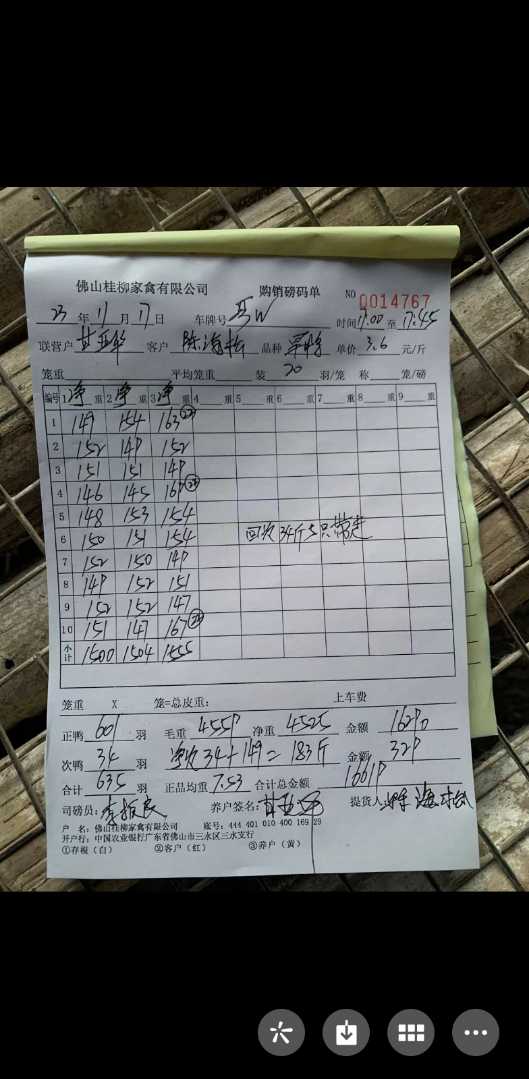 佛山桂柳家禽有限公司 购销磅码单 NO 0014767
23 年 11 月 17 日 车牌号 时间 17:00 至 17:45
联营户 客户 陈海松 品种 单价 3.6 元/斤
笼重 平均笼重 装 20 羽/笼 称 笼/磅
编号 1 净 重 2 净 重 3 净 重 4 重 5 重 6 重 7 重 8 重 9 重
1 149 154 163
2 152 149 152
3 151 151 149
4 146 145 169
5 148 153 154
6 150 151 154 回次34斤5只带走
7 152 150 149
8 149 152 151
9 152 152 147
10 151 147 167
小计 1500 1504 1555
笼重 X 笼=总皮重: 上车费
正鸭 601 羽 毛重 4559 净重 4525 金额 16290
次鸭 34 羽 34+149=183斤 金额 329
合计 635 羽 正品均重 7.53 合计总金额 16619
司磅员: 养户签名: 提货人 陈海松
户 名:佛山桂柳家禽有限公司 账号:444 401 010 400 169 29
开户行:中国农业银行广东省佛山市三水区三水支行
①存根(白) ②客户(红) ③养户(黄)